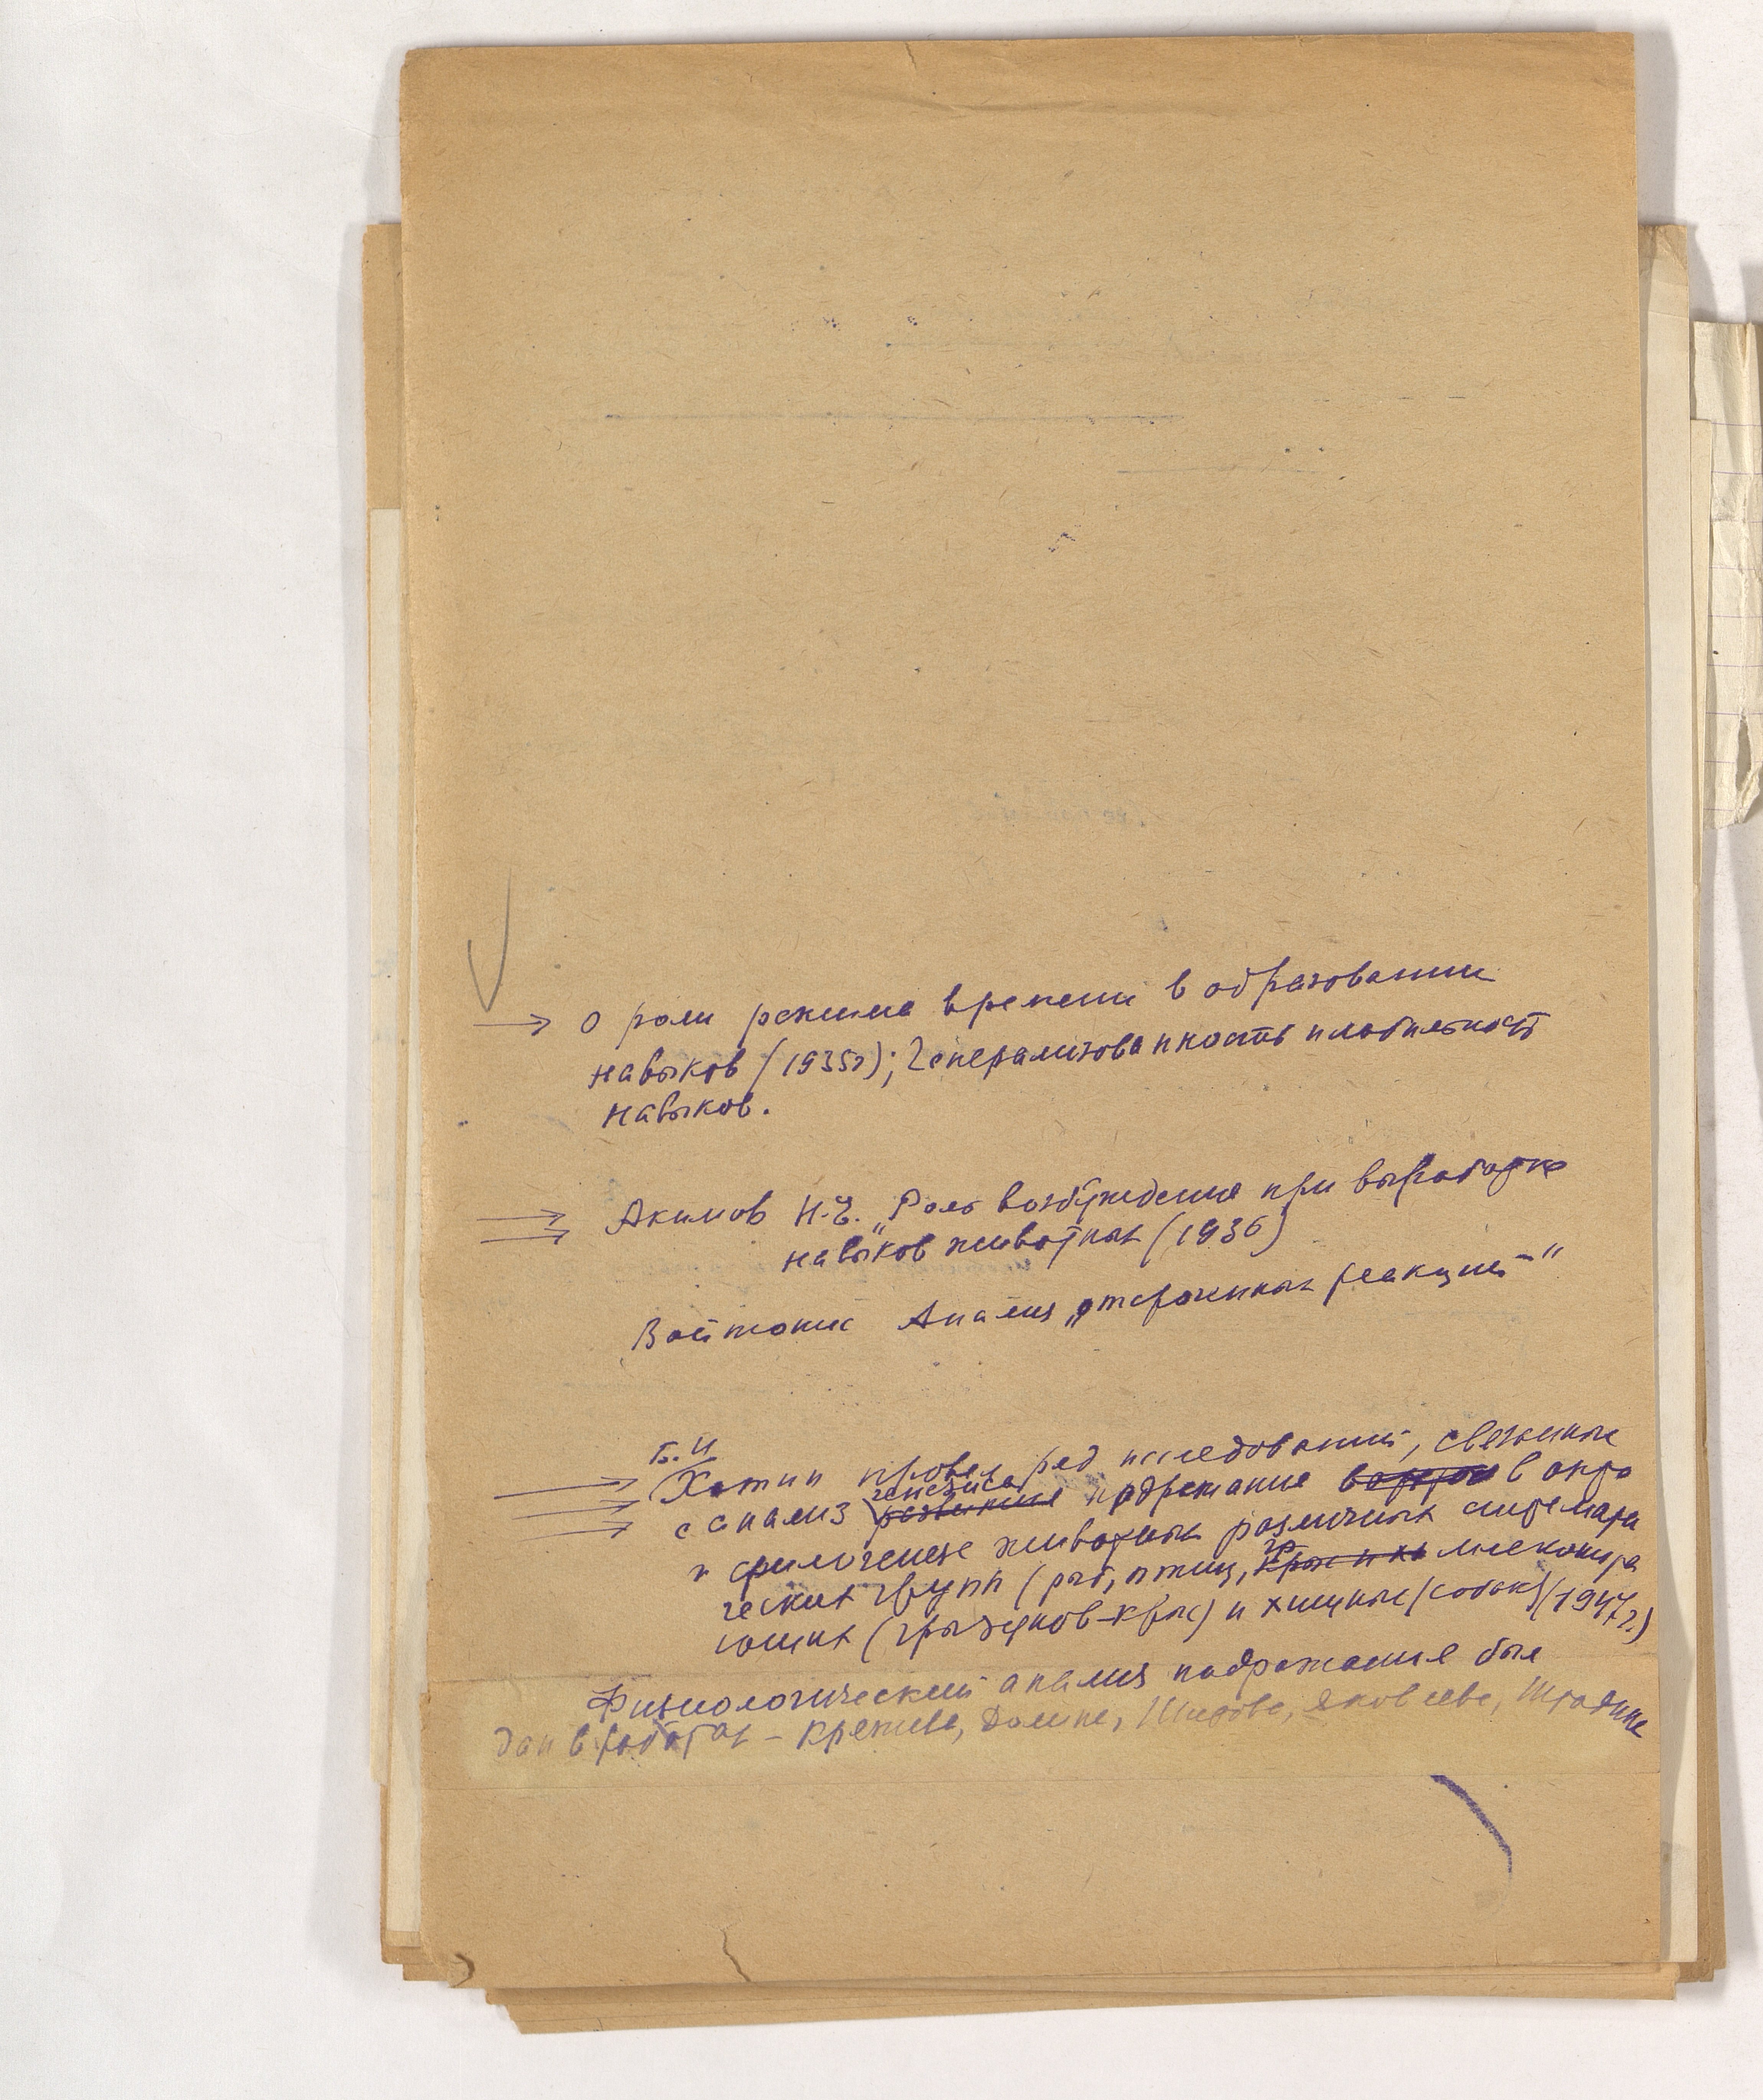 О роли режима времени в образовании
навыков (1935г); Генерализованность и лабильность
навыков.
Акимов Н.Е. „Роль возбуждения при выработке
навыков животных (1936)
Войтонис Анализ „отсроченных реакций"
Б.И
Хотин провел ряд исследований, связанные
с анализ генезиса развития подражание в онто
и филогенезе животных различных система
ческих групп (рыб, птиц, гр млекопита
ющих (грызунов-крыс) и хищных (собак) (1947г.)
Физиологический анализ подражания был
дан в работах – Кряжева, Долина, Широва, Яковлева, Штодина